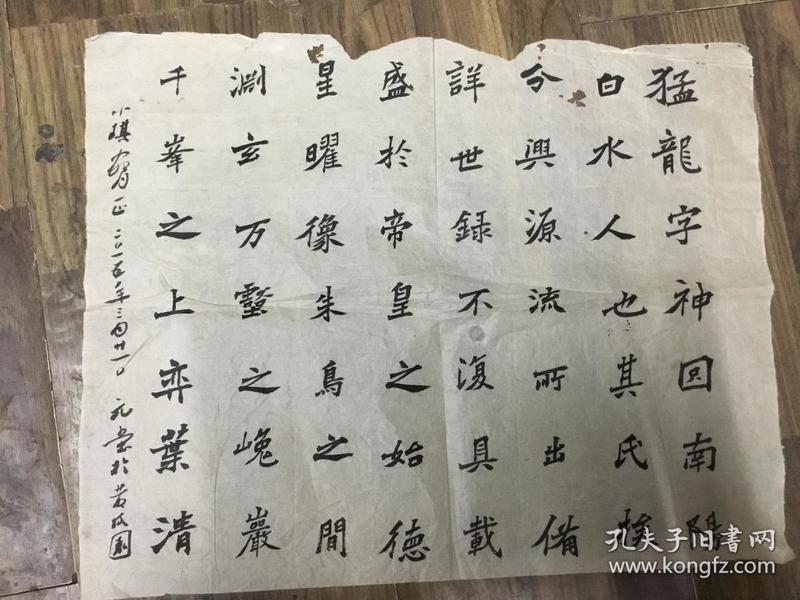 猛龍字神囘南陽
白水人也其氏族
分興源流所出備
詳世録不復具載
盛於帝皇之始德
星曜像朱鳥之間
淵玄万壑之㠢巖
千峯之上弈葉清
小琪 正 二〇一五年三月廿一日 元 於黄 園
孔夫子旧书网
www.kongfz.com